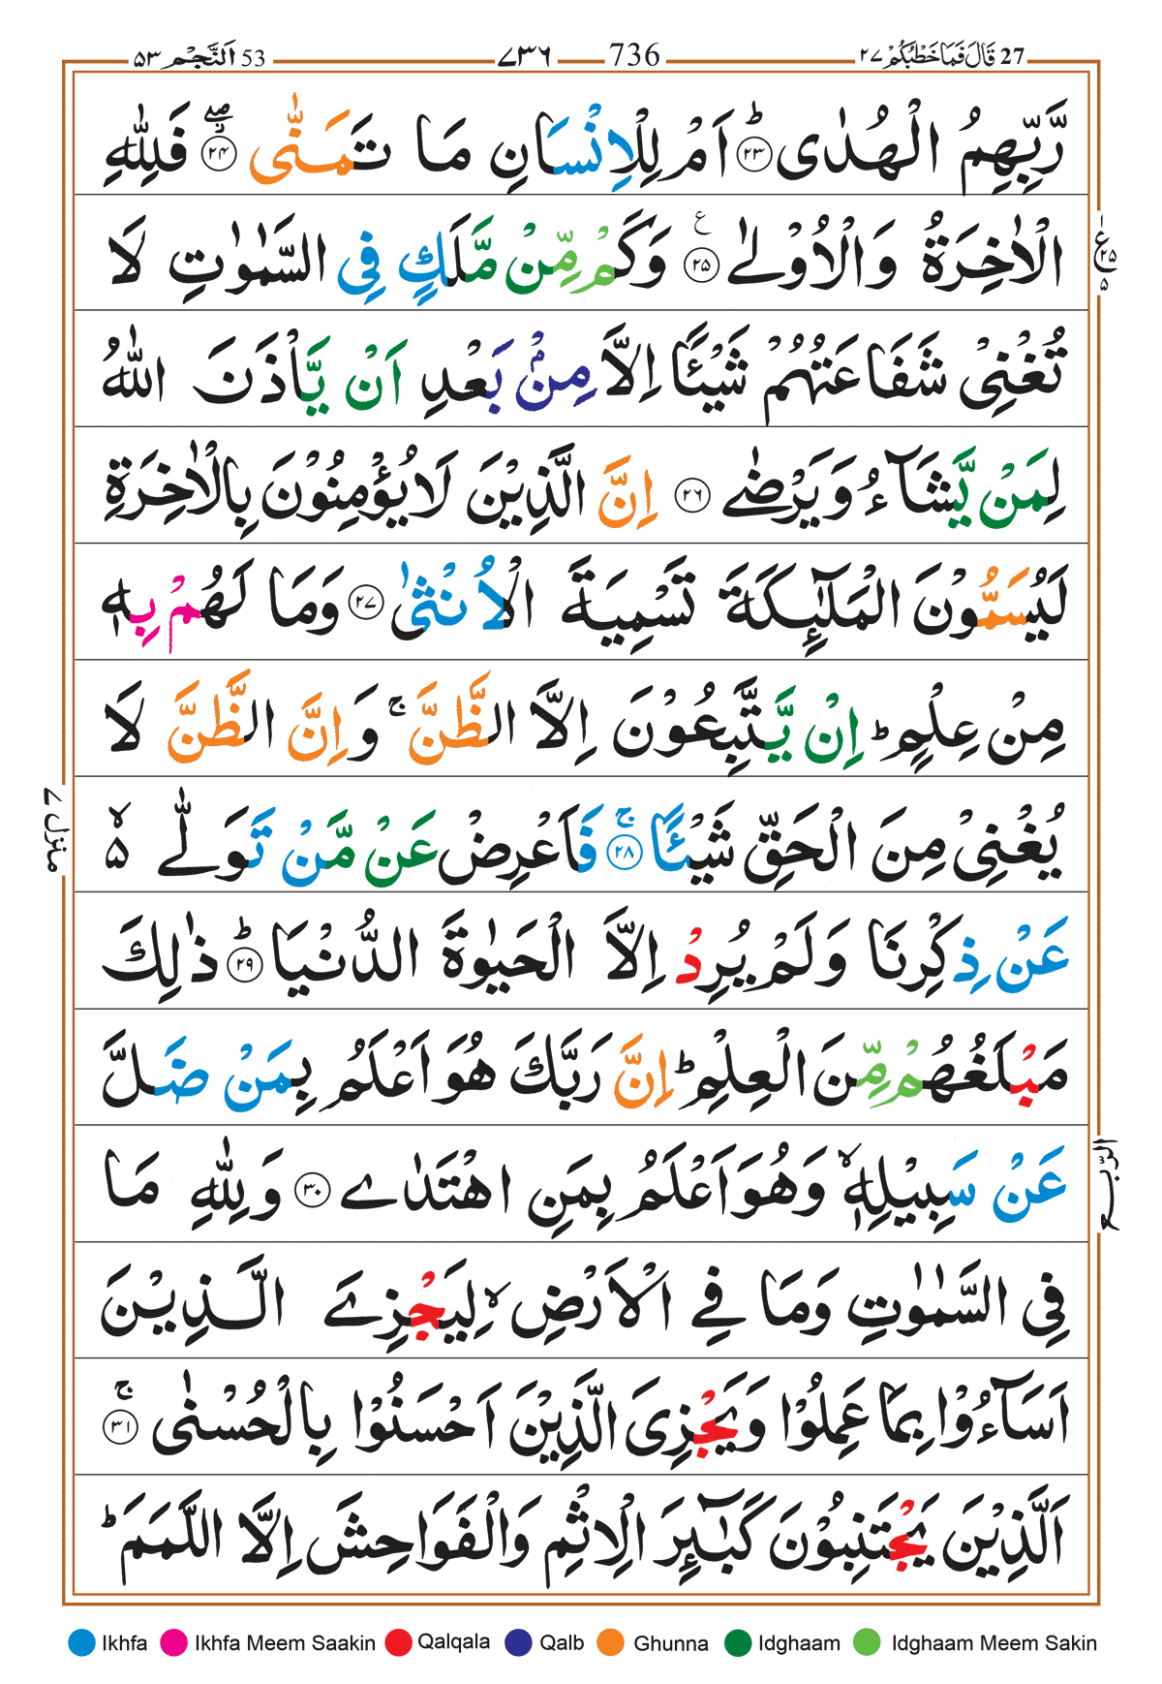 27 قَالَ فَمَا خَطْبُكُمْ ٢٧ 736 ٧٣٦ 53 اَلنَّجْم ٥٣
رَّبِّهِمُ الْهُدٰى ؕ ٢٣ اَمْ لِلْاِنْسَانِ مَا تَمَنّٰى ۖ ٢٤ فَلِلّٰهِ
الْاٰخِرَةُ وَالْاُوْلٰى ٢٥ ع وَكَمْ مِّنْ مَّلَكٍ فِى السَّمٰوٰتِ لَا
ع ٢٥ ٥
تُغْنِىْ شَفَاعَتُهُمْ شَيْئًا اِلَّا مِنْۢ بَعْدِ اَنْ يَّاْذَنَ اللّٰهُ
لِمَنْ يَّشَآءُ وَيَرْضٰى ٢٦ اِنَّ الَّذِيْنَ لَا يُؤْمِنُوْنَ بِالْاٰخِرَةِ
لَيُسَمُّوْنَ الْمَلٰٓئِكَةَ تَسْمِيَةَ الْاُنْثٰى ٢٧ وَمَا لَهُمْ بِهٖ
مِنْ عِلْمٍ ؕ اِنْ يَّتَّبِعُوْنَ اِلَّا الظَّنَّ ۚ وَاِنَّ الظَّنَّ لَا
يُغْنِىْ مِنَ الْحَقِّ شَيْئًا ۚ ٢٨ فَاَعْرِضْ عَنْ مَّنْ تَوَلّٰى ۙ۵
منزل ٧
عَنْ ذِكْرِنَا وَلَمْ يُرِدْ اِلَّا الْحَيٰوةَ الدُّنْيَا ؕ ٢٩ ذٰلِكَ
مَبْلَغُهُمْ مِّنَ الْعِلْمِ ؕ اِنَّ رَبَّكَ هُوَ اَعْلَمُ بِمَنْ ضَلَّ
عَنْ سَبِيْلِهٖ ۙ وَهُوَ اَعْلَمُ بِمَنِ اهْتَدٰى ٣٠ وَلِلّٰهِ مَا
الرّبع
فِى السَّمٰوٰتِ وَمَا فِى الْاَرْضِ ۙ لِيَجْزِىَ الَّذِيْنَ
اَسَآءُوْا بِمَا عَمِلُوْا وَيَجْزِىَ الَّذِيْنَ اَحْسَنُوْا بِالْحُسْنٰى ۚ ٣١
اَلَّذِيْنَ يَجْتَنِبُوْنَ كَبٰٓئِرَ الْاِثْمِ وَالْفَوَاحِشَ اِلَّا اللَّمَمَ ؕ
Ikhfa Ikhfa Meem Saakin Qalqala Qalb Ghunna Idghaam Idghaam Meem Sakin